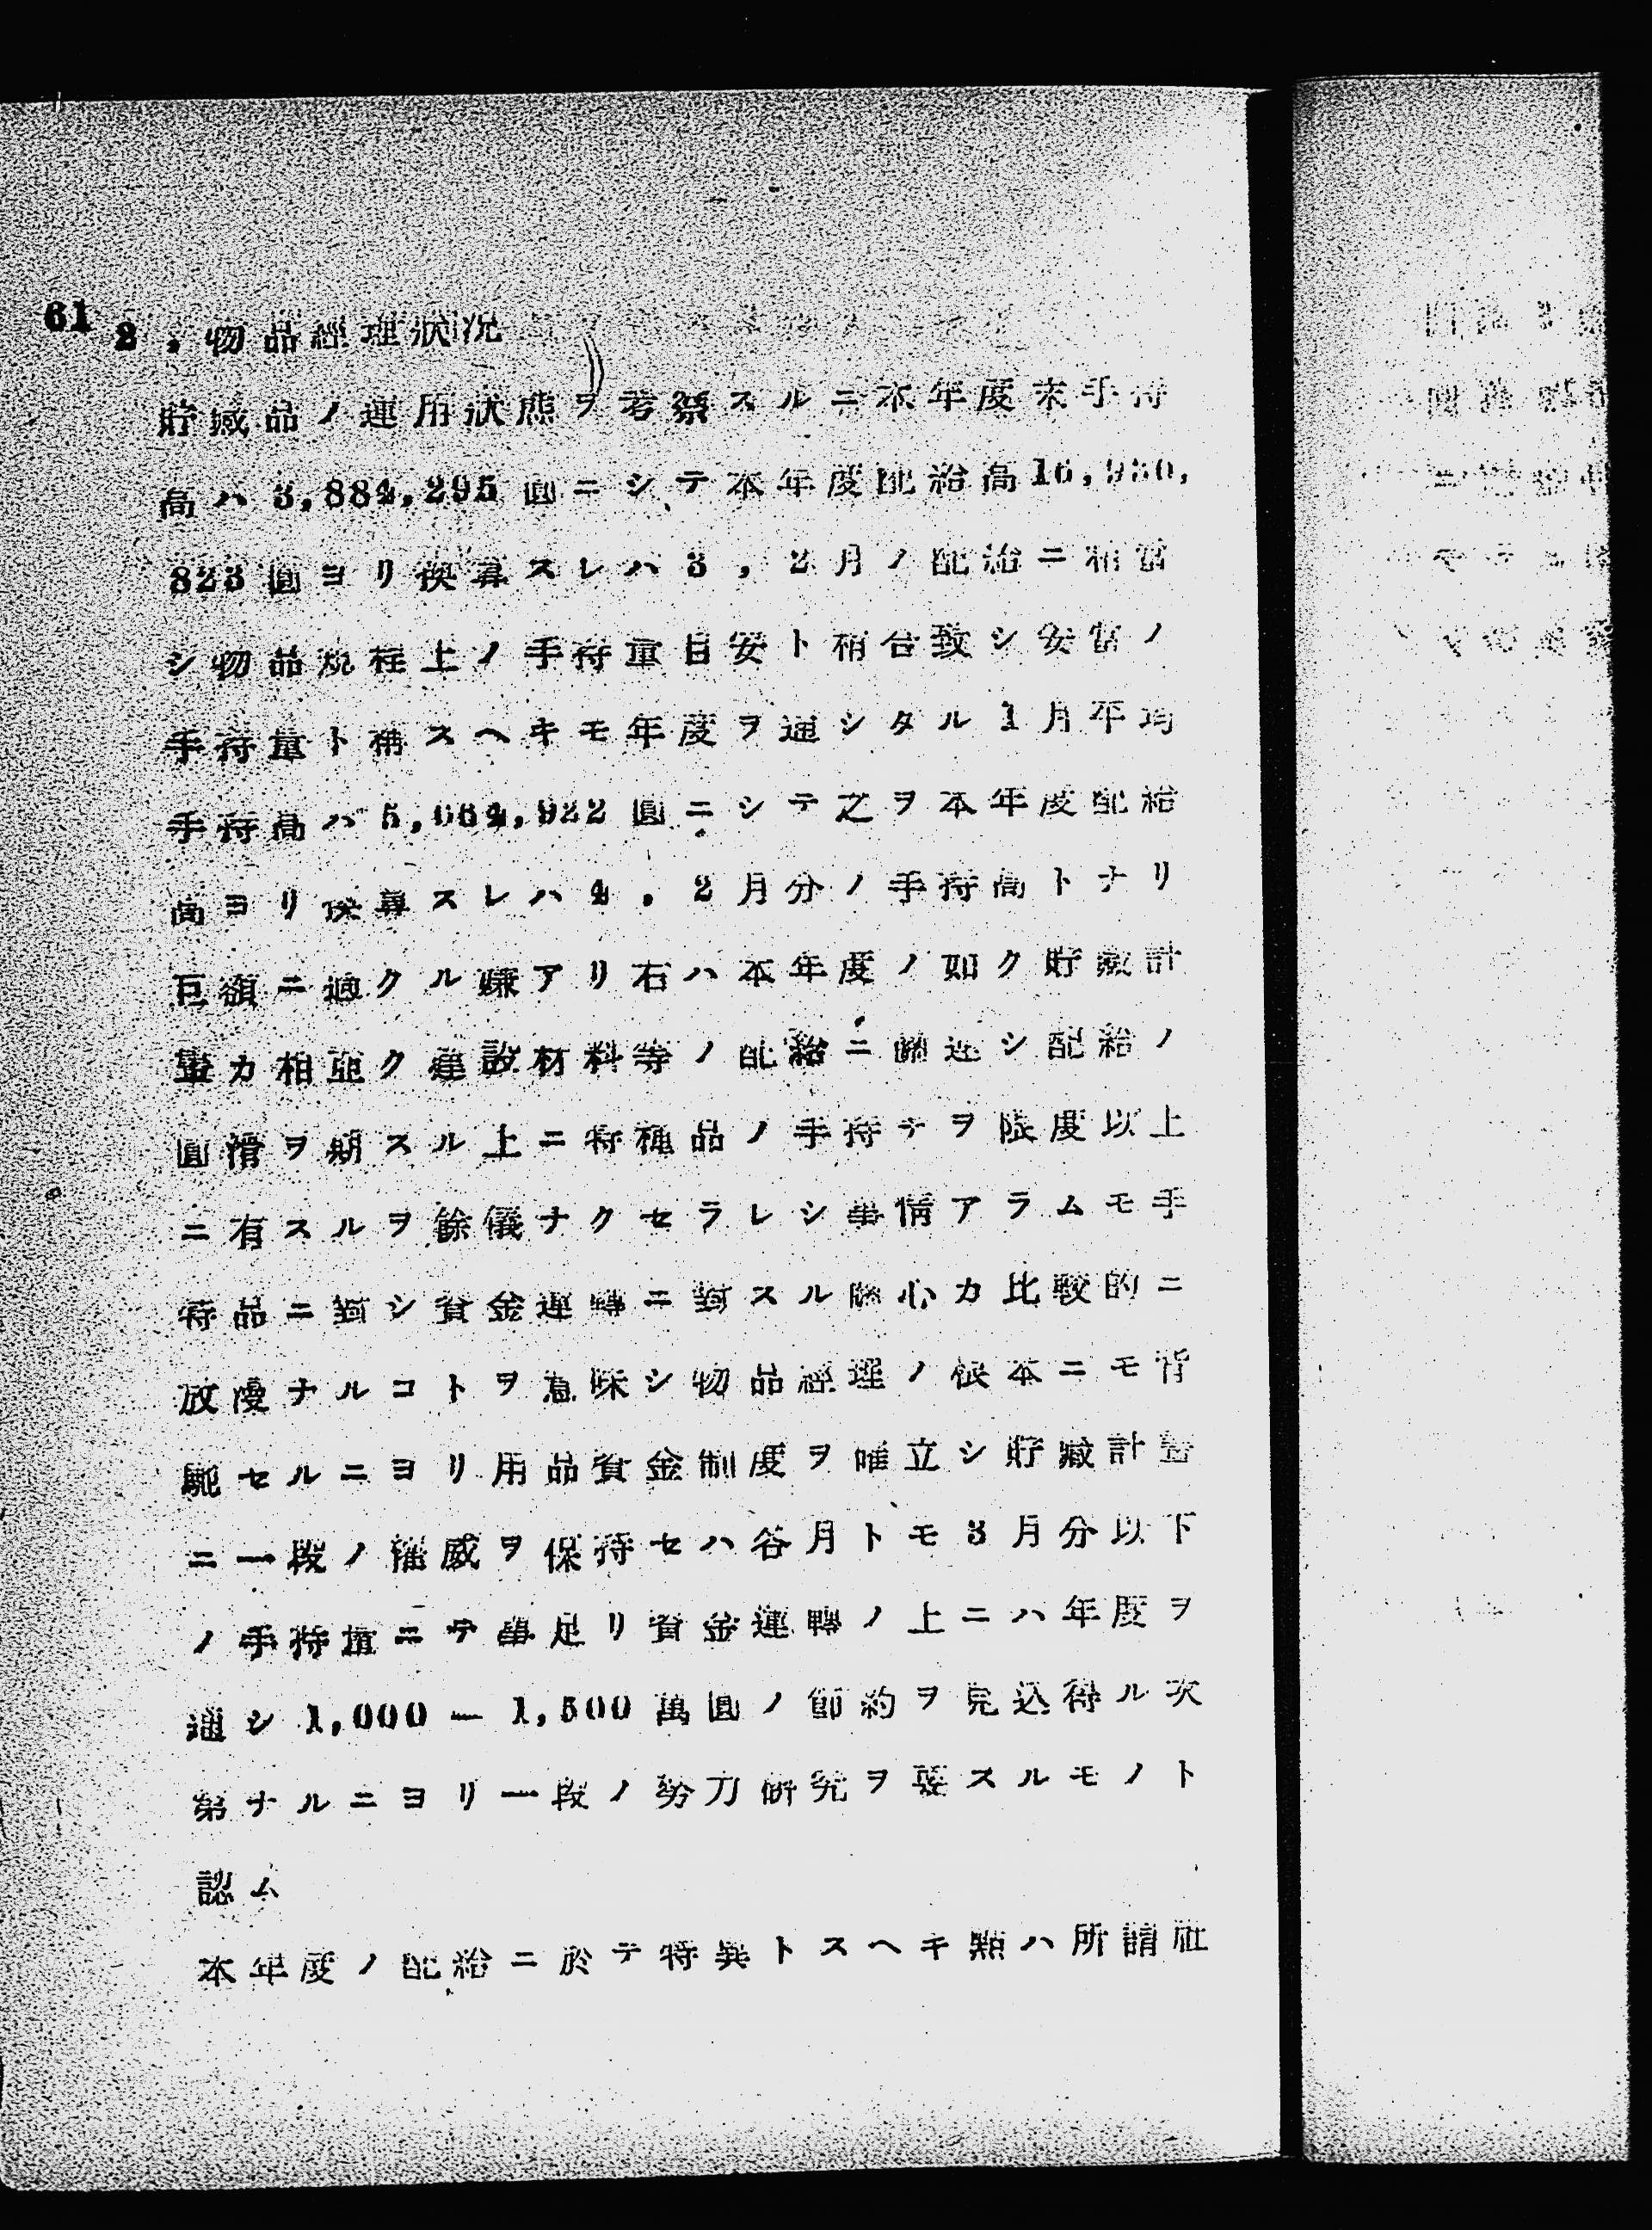 61
2，物品經理狀況
貯藏品ノ運用狀態ヲ考察スルニ本年度末手持
高ハ 3,884,295 圓ニシテ本年度配給高16,950,
823 圓ヨリ換算スレハ 3，2 月ノ配給ニ相當
シ物品規程上ノ手持量目安ト稍合致シ妥當ノ
手持量ト稱スヘキモ年度ヲ通シタル 1 月平均
手持高ハ 5,664,922 圓ニシテ之ヲ本年度配給
高ヨリ換算スレハ 4．2 月分ノ手持高トナリ
巨額ニ過クル嫌アリ右ハ本年度ノ如ク貯藏計
畫カ相亞ク建設材料等ノ配給ニ關連シ配給ノ
圓滑ヲ期スル上ニ特種品ノ手持チヲ限度以上
ニ有スルヲ餘儀ナクセラレシ事情アラムモ手
持品ニ對シ資金運轉ニ對スル關心カ比較的ニ
放漫ナルコトヲ意味シ物品經理ノ根本ニモ背
馳セルニヨリ用品資金制度ヲ確立シ貯藏計畫
ニ一段ノ權威ヲ保持セハ各月トモ 3 月分以下
ノ手持量ニテ事足リ資金運轉ノ上ニハ年度ヲ
通シ 1,000 — 1,500 萬圓ノ節約ヲ見込得ル次
第ナルニヨリ一段ノ努力研究ヲ要スルモノト
認ム
本年度ノ配給ニ於テ特異トスヘキ點ハ所請社